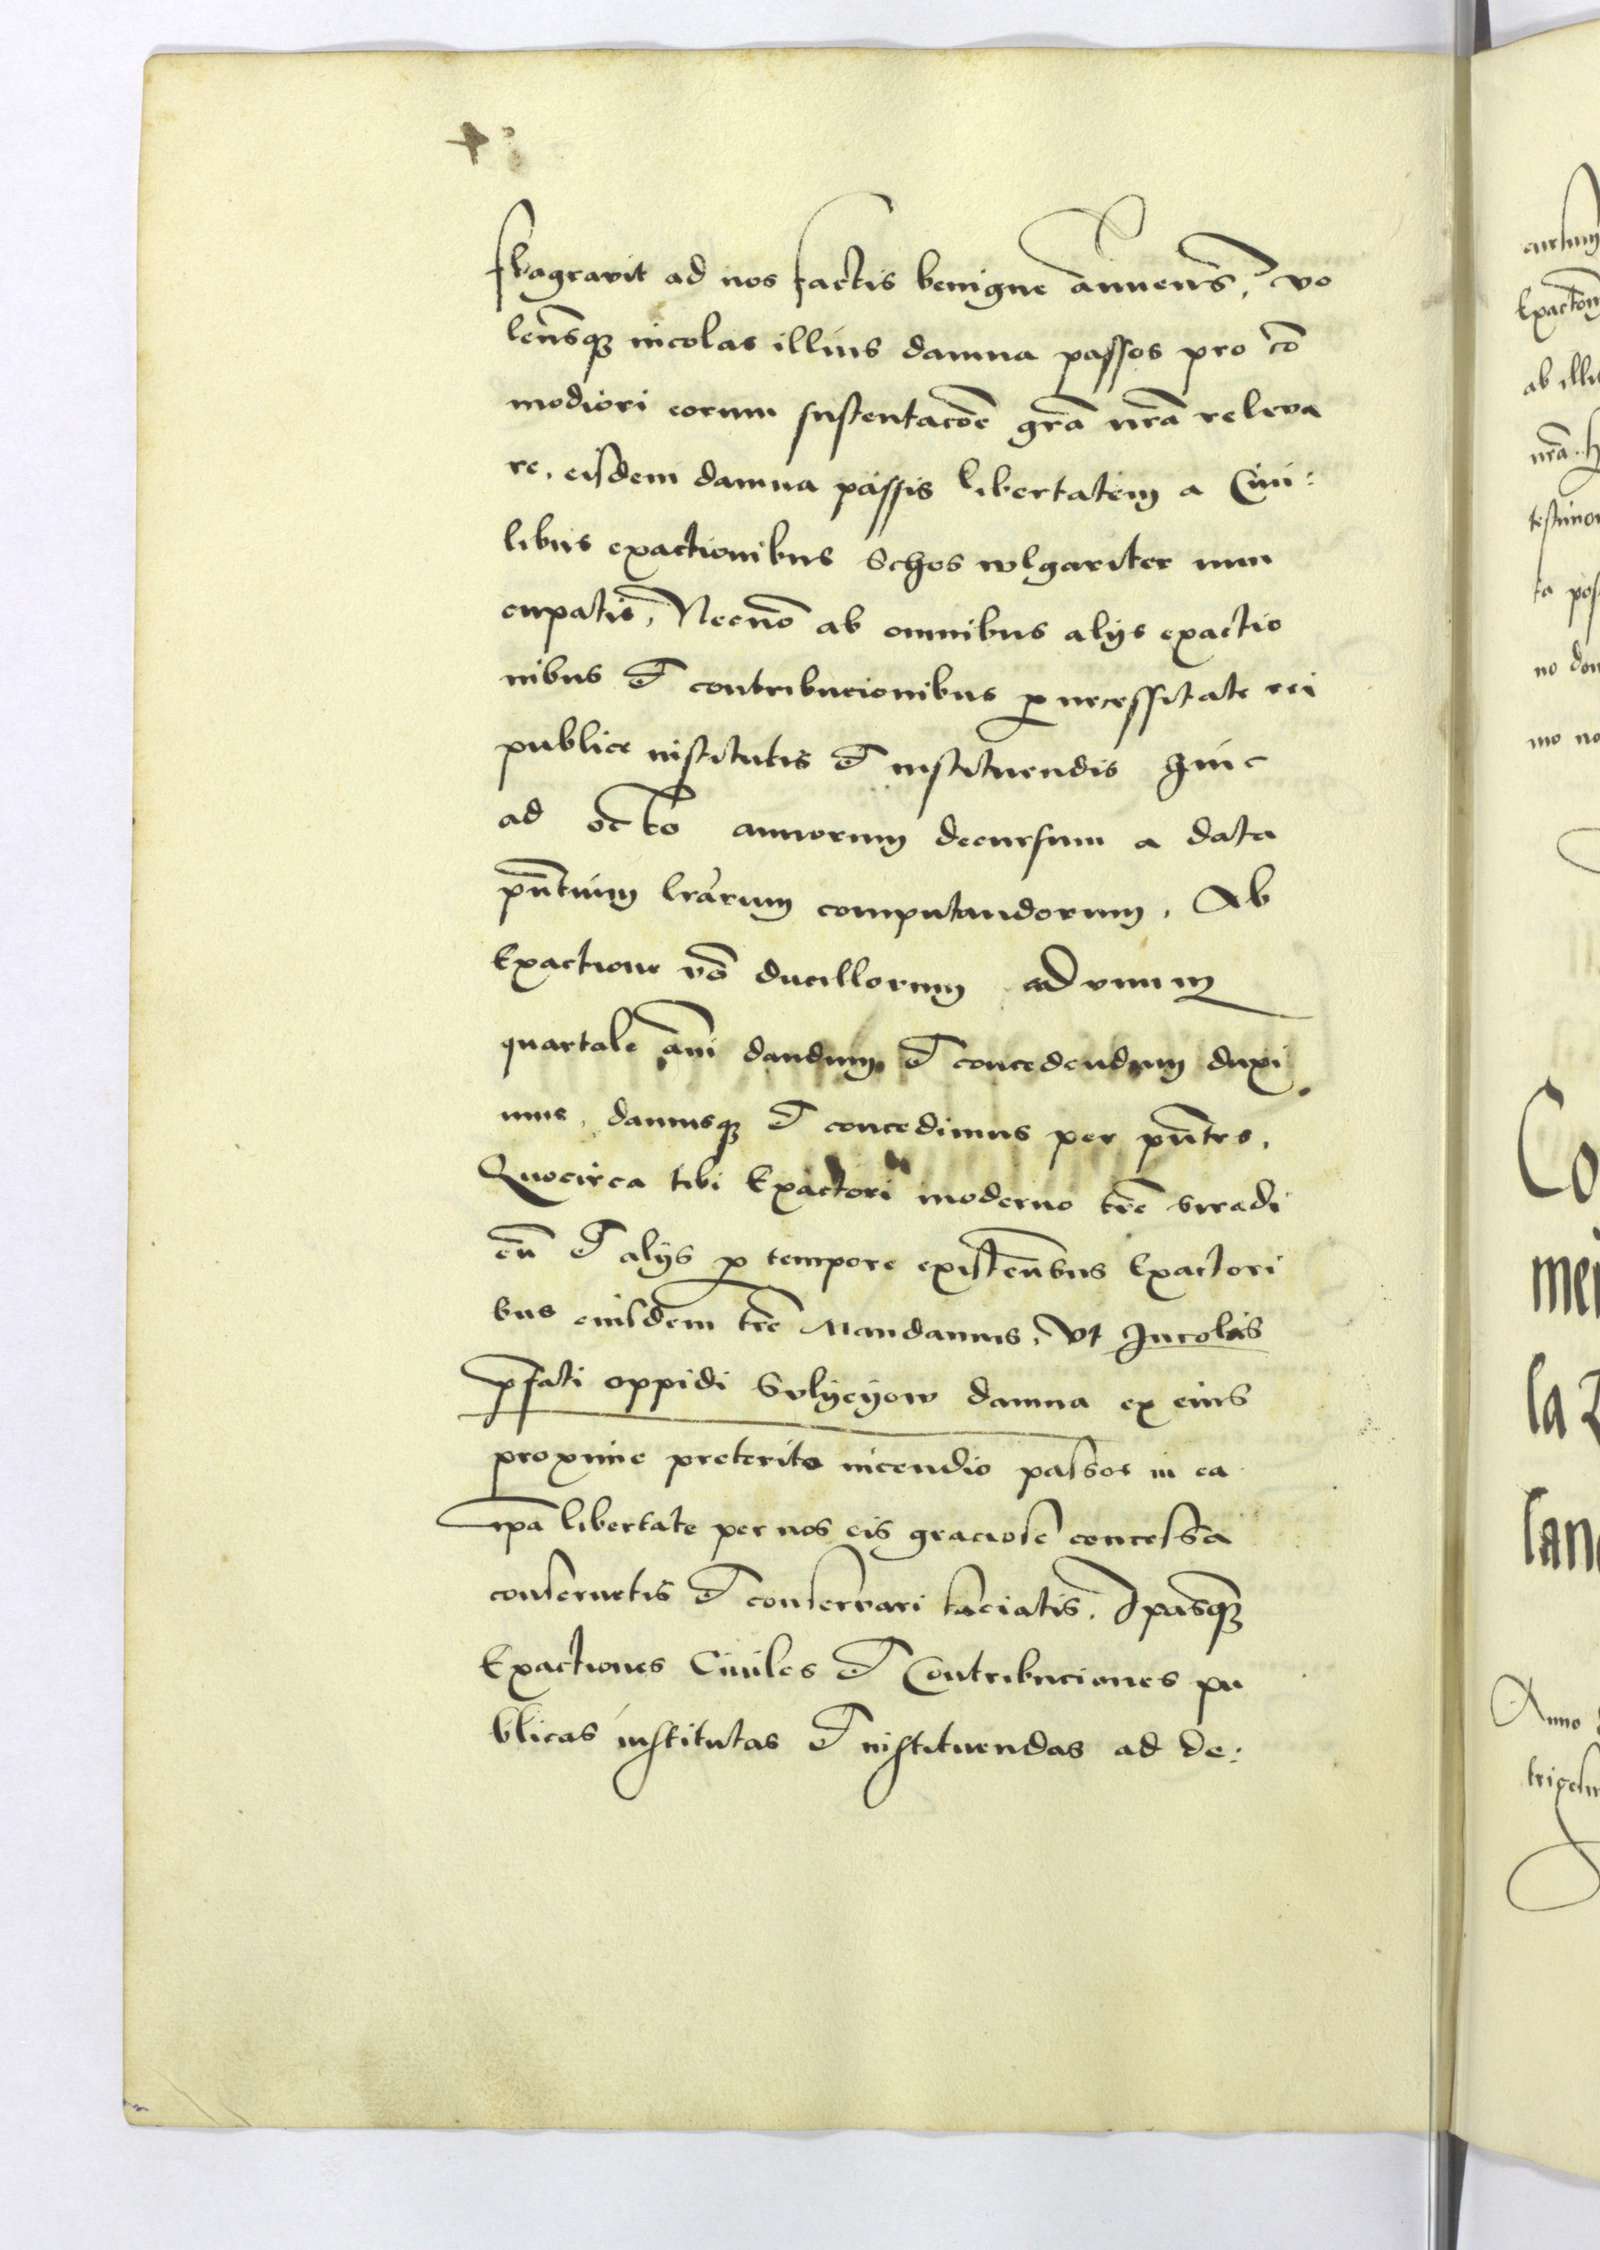 flagravit ad nos factis benigne annuens, vo
lensq3 incolas illius damna passos pro co
modiori eorum sustentacoe gra nra releva
re, eisdem damna passis libertatem a Ciui:
libus exactionibus Schos wlgariter nun
cupatis, Necno ab omnibus alijs exactio
nibus et contribucionibus p necessitate rei
publice institutis et instituendis Hinc
ad octo annorum decursum a data
pntium lrarum computandorum, Ab
Exactione vo ducillorum ad vnum
quartale ani dandum et concedendum duxi
mus, damusq3 et concedimus per pntes,
Quocirca tibi Exactori moderno tre Siradi
en et alijs p tempore existentibus Exactori
bus eiusdem tre Mandamus, vt Incolis
pfati oppidi Sulyeyow damna ex eius
proxime preterito incendio passos in ea
ipa libertate per nos eis graciose concessa
conseruetis et conservari faciatis, Ipasq3
Exactiones Ciuiles et Contribuciones pu
blicas institutas et instituendas ad de:
Exactoni
ab illi
nra. H
testimon
ta pos
no don
mo no
Co
mei
la
lan
Anno
trigesim